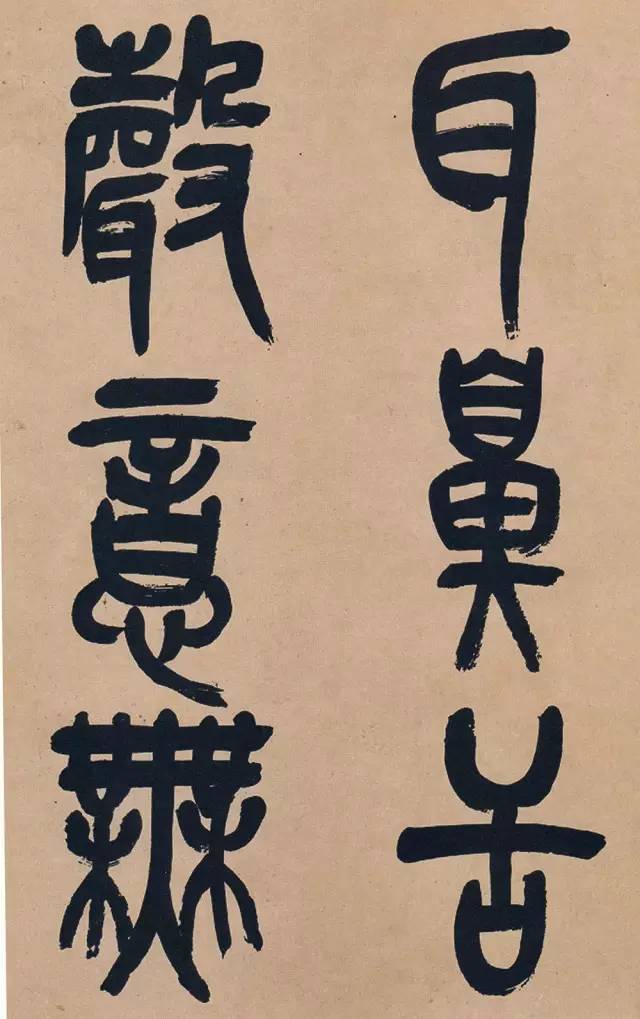 耳鼻舌
聲意無